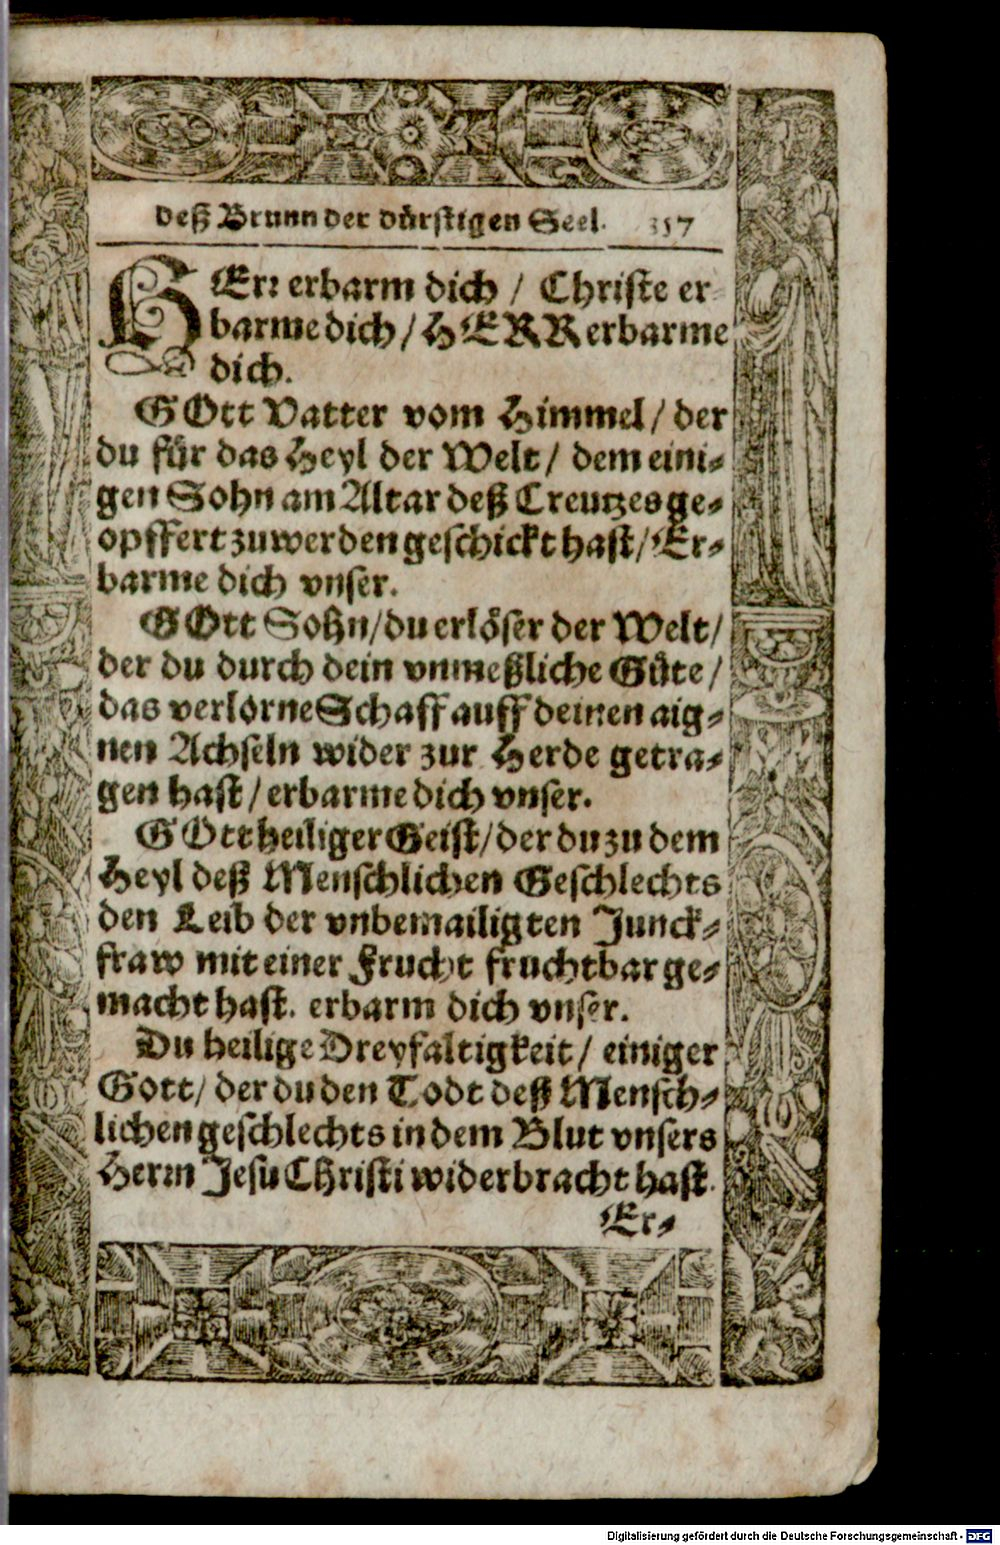 deß Brunn der dürstigen Seel. 357
HErr erbarm dich / Christe er
barme dich / HERR erbarme
dich.
GOtt Vatter vom Himmel / der
du für das Heyl der Welt / dem eini-
gen Sohn am Altar deß Creutzes ge-
opffert zuwerden geschickt hast / Er-
barme dich vnser.
GOtt Sohn / du erlöser der Welt /
der du durch dein vnmeßliche Güte /
das verlorne Schaff auff deinen aig-
nen Achseln wider zur Herde getra-
gen hast / erbarme dich vnser.
GOtt heiliger Geist / der du zu dem
Heyl deß Menschlichen Geschlechts
den Leib der vnbemailigten Junck-
fraw mit einer Frucht fruchtbar ge-
macht hast. erbarm dich vnser.
Du heilige Dreyfaltigkeit / einiger
Gott / der du den Todt deß Mensch-
lichen geschlechts in dem Blut vnsers
Herrn Jesu Christi widerbracht hast.
Er-
Digitalisierung gefördert durch die Deutsche Forschungsgemeinschaft - DFG